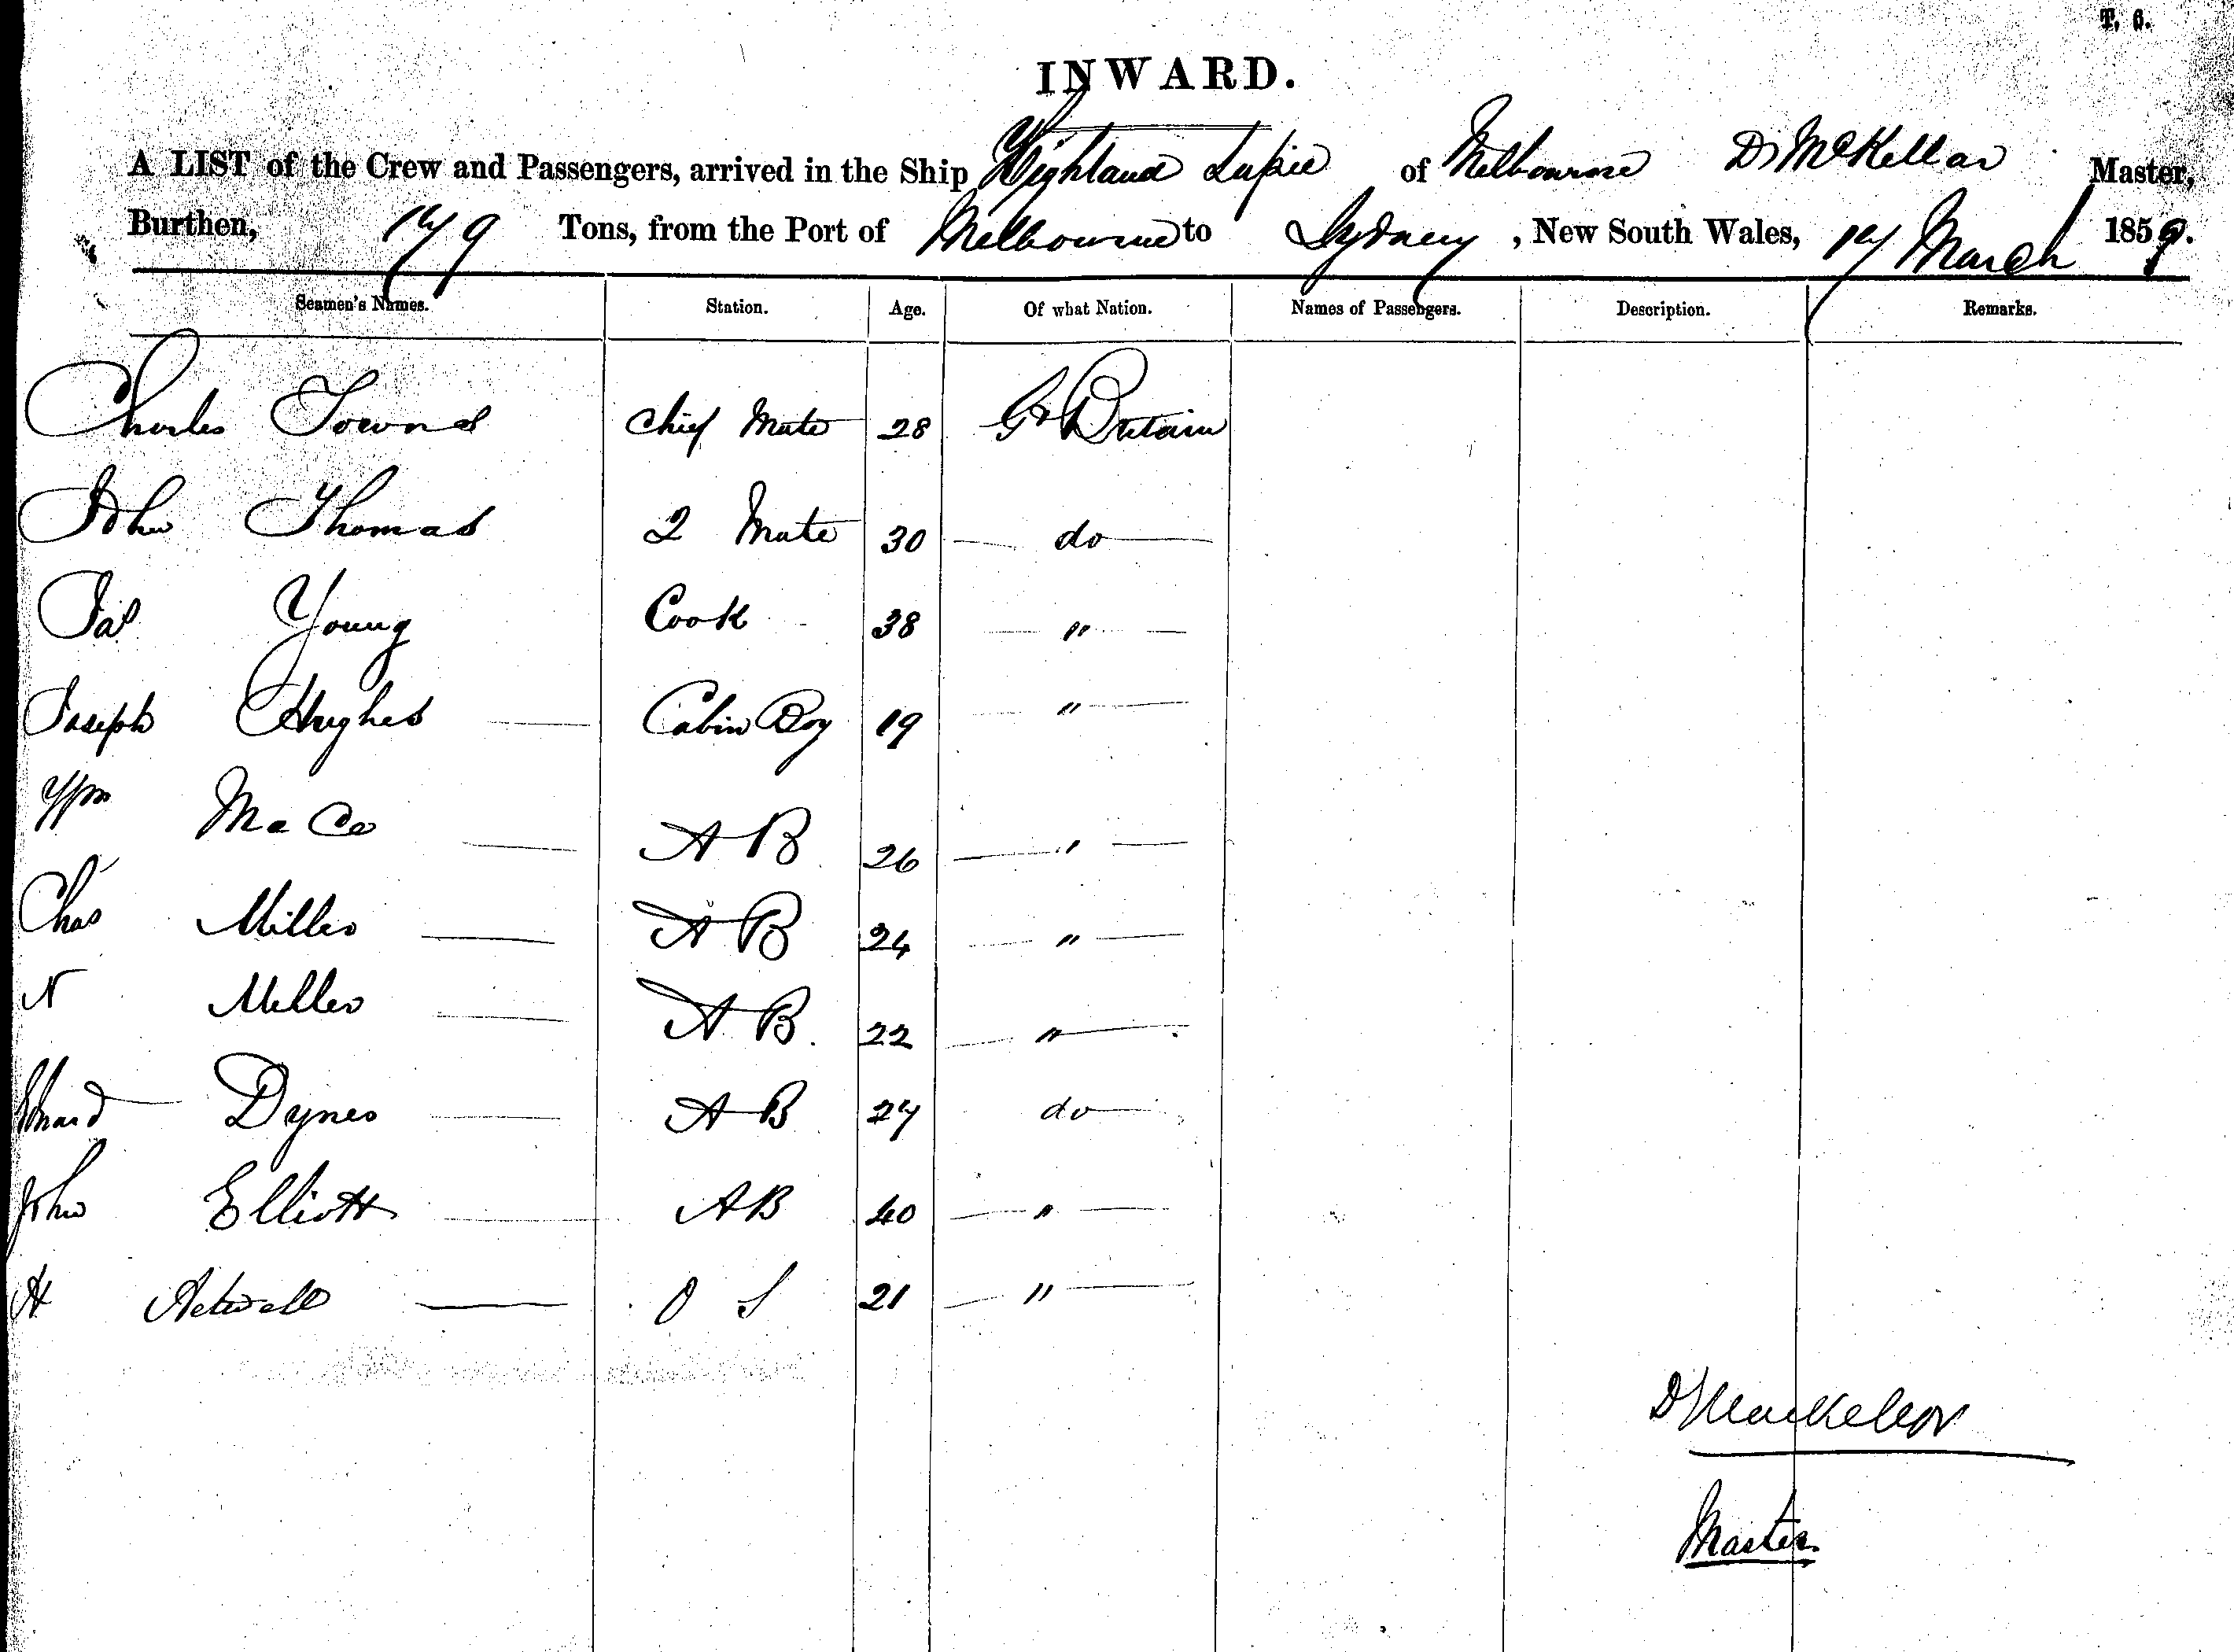 T. 6.
INWARD.
A LIST of the Crew and Passengers, arrived in the Ship Highland Lassie of Melbourne D McKellar Master,
Burthen, 179 Tons, from the Port of Melbourne to Sydney, New South Wales, 17 March 1859.
Seamen's Names. Station. Age. Of what Nation. Names of Passengers. Description. Remarks.
Charles Towns Chief Mate 28 Gt Britain
John Thomas 2 Mate 30 do
Jas Young Cook 38 "
Joseph Hughes Cabin Boy 19 "
Wm A B 26 "
Chas Miller A B 24 "
N Miller A B 22 "
Edward Dynes A B 27 do
John Elliott A B 40 "
H O S 21 "
D Mackellar
Master